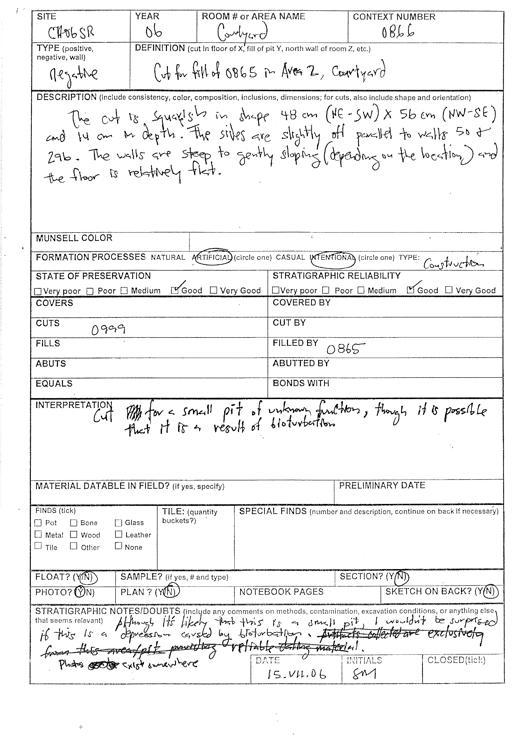 SITE YEAR ROOM # or AREA NAME CONTEXT NUMBER
CH06SR 06 Courtyard 0866
TYPE (positive, negative, wall) DEFINITION (cut in floor of X, fill of pit Y, north wall of room Z, etc.)
negative Cut for fill of 0865 in Area 2, Courtyard
DESCRIPTION (include consistency, color, composition, inclusions, dimensions; for cuts, also include shape and orientation)
The cut is squarish in shape 48 cm (NE-SW) X 56 cm (NW-SE)
and 14 cm in depth. The sides are slightly off parallel to walls 50 &
296. The walls are steep to gently sloping (depending on the location) and
the floor is relatively flat.
MUNSELL COLOR
FORMATION PROCESSES NATURAL ARTIFICIAL (circle one) CASUAL INTENTIONAL (circle one) TYPE: Construction
STATE OF PRESERVATION STRATIGRAPHIC RELIABILITY
Very poor Poor Medium Good Very Good Very poor Poor Medium Good Very Good
COVERS COVERED BY
CUTS 0999 CUT BY
FILLS FILLED BY 0865
ABUTS ABUTTED BY
EQUALS BONDS WITH
INTERPRETATION
Cut for a small pit of unknown function, though it is possible
that it is a result of bioturbation
MATERIAL DATABLE IN FIELD? (if yes, specify) PRELIMINARY DATE
FINDS (tick) TILE: (quantity buckets?) SPECIAL FINDS (number and description, continue on back if necessary)
Pot Bone Glass
Metal Wood Leather
Tile Other None
FLOAT? (Y/N) SAMPLE? (if yes, # and type) SECTION? (Y/N)
PHOTO? (Y/N) PLAN? (Y/N) NOTEBOOK PAGES SKETCH ON BACK? (Y/N)
STRATIGRAPHIC NOTES/DOUBTS (include any comments on methods, contamination, excavation conditions, or anything else that seems relevant)
Although it's likely that this is a small pit, I wouldn't be surprised
if this is a depression caused by bioturbation. Artifacts collected are exclusively
from this area/pit providing reliable dating material.
Photo exist somewhere
DATE INITIALS CLOSED(tick:)
15.VII.06 SM